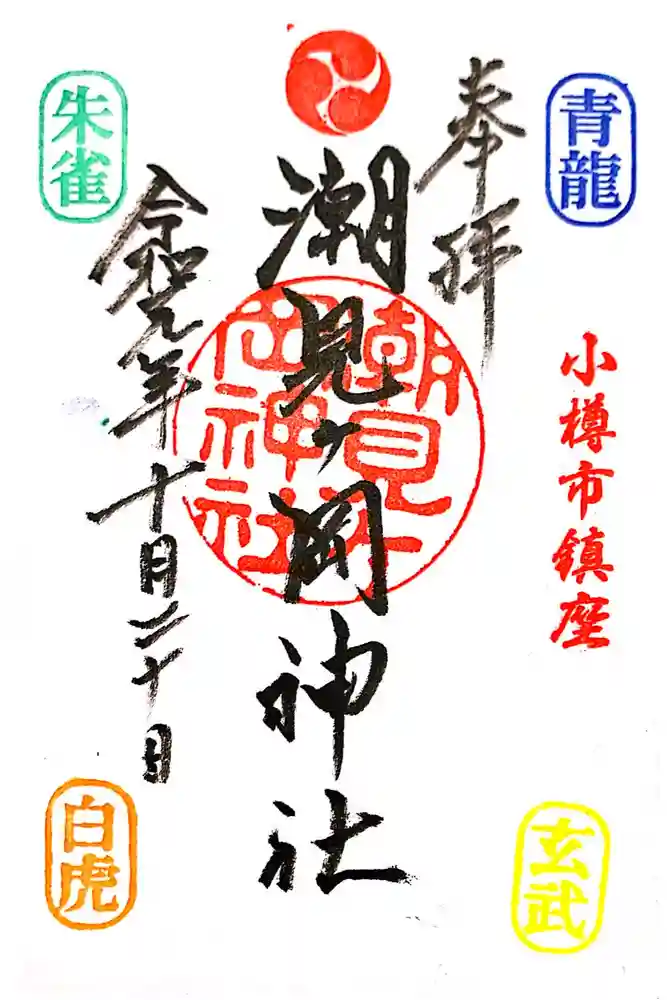 奉拝
青龍
小樽市鎮座
玄武
潮見ヶ岡神社
潮見ヶ
岡神社
令和元年十月二十日
朱雀
白虎